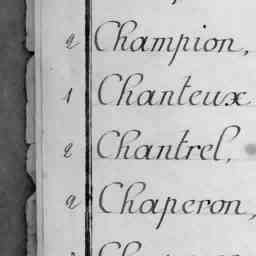 2 Champion,
1 Chanteux
2 Chantrel,
2 Chaperon,